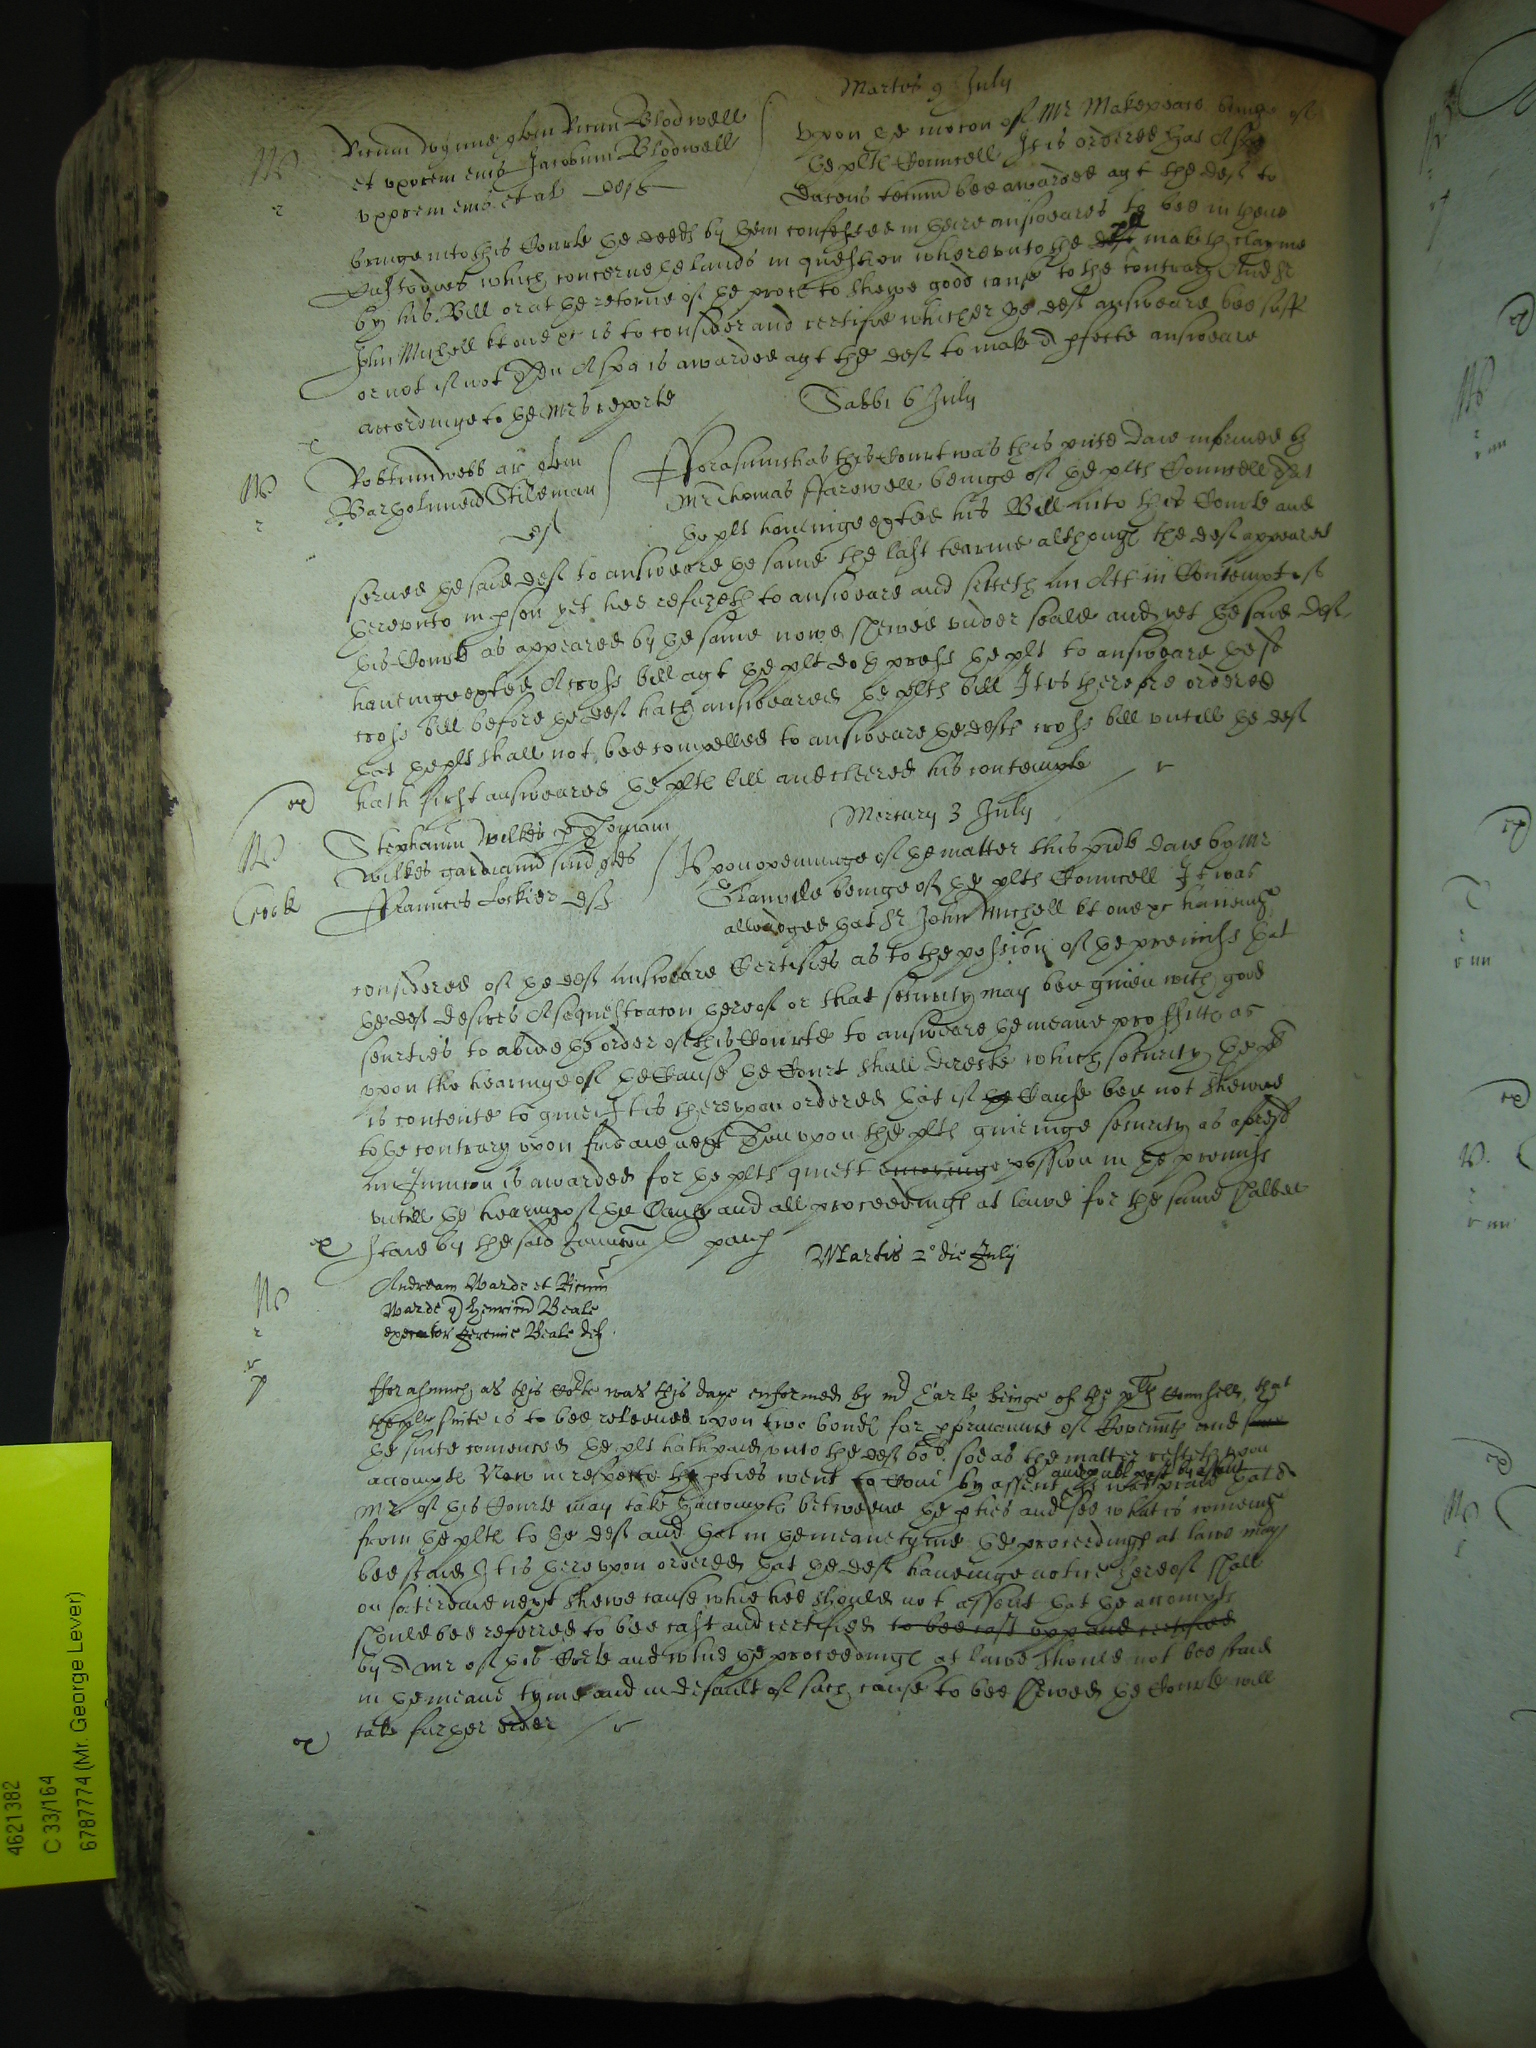 Martis 9 July
Ricum Wynne quer Ricum Blodwell
et uxorem eius Jacobum Blodwell
uxorem eius et al deftes
Upon the mocon of Mr Makepeace beinge of
the plts Councell It is ordered that A spa
ducens tecum bee awarded agt the deft to
bringe into this Courte the deeds by them confessed in theire answeares to bee in there
Custodies which concerne the lands in question whereunto the plt maketh clayme
by his Bill or at the retorne of the proces to shewe good cause to the contrary And Sr
John Michell kt one &c is to consider and certifie whether the deft answeare bee suff
or not if not then A spa is awarded agt the deft to make A pfecte answeare
accordinge to the Mrs reporte
Sabbi 6 July
Robtum Webb ar quer
Bartholmeu Stileman
deft
Fforasmuch as this Court was this pnte daie informed by
Mr Thomas Ffarewell beinge of the plts Councell that
the plt haueinge exhted his Bill into this Courte and
serued the said deft to answeare the same the last tearme although the deft appeared
therevnto in pson yet hee refuseth to answeare and sitteth an Att in Contempt of
this Courte as appeared by the same nowe shewed vnder seale and yet the said deft
haueinge exhted A cross bill agt the plt doth presse the plt to answeare the sd
cross bill before the deft hath answeared the plts bill It is therefore ordered
that the plt shall not bee compelled to answeare the defts cross bill vntill the deft
hath first answeared the plts bill and cleered his contempte
Mercury 3 July
Stephanum Wilkes p Thomam
Wilkes gardianum suum quer
Ffrances Lockier deft
Crock
Vpon openinge of the matter this pnte daie by Mr
Glanvile beinge of the plts Councell It was
alleadged that Sr John Michell kt one &c haueinge
considered of the deft answeare Certifies as to the possession of the premisses that
the deft desires A sequestracon thereof or that security may bee giuen with good
seurties to abide the order of this Courte to answeare the meane proffitts as
vpon the hearinge of the Cause the Court shall directe which security the plt
is contente to giue It is therevpon ordered that if the Cause bee not shewed
to the contrary vpon fridaie next then vpon the plts giueinge security as aforesd
an Iniuncon is awarded for the plts quiett possion in the premisses
vntill the hearinge of the Cause and all proceedings at lawe for the same shalbee
staied by the said Iniuncon
Martis 2o die Julij
Andream Warde et Ricum
Warde quer Henricum Beale
executor Jeremie Beale deft
Fforasmuch as this Corte was this daye enformed by mr Earle beinge of the plts Councell, that
the plts suite is to bee releeued vpon two bonds for pformance of Couennts and
the suite comenced the plt hath paid vnto the deft 60li soe as the matter resteth vpon
accompte Now in respecte the pties went to Com by assent
Mr of this Courte may take thaccompts betweene the pties and see what is comeinge
from the plt to the deft and that in the meane tyme the proceedings at lawe may
bee staied It is therevpon ordered that the deft haueinge notice thereof shall
on saterdaie next shewe cause whie hee should not assent that the accompts
should bee referred to bee cast and certified to bee cast vpp and certified
by A Mr of this Corte and whie the proceedings at lawe should not bee staied
in the meane tyme and in default of such cause to bee shewed the Courte will
take further order
4621382
C 33/164
6787774 (Mr. George Lever)